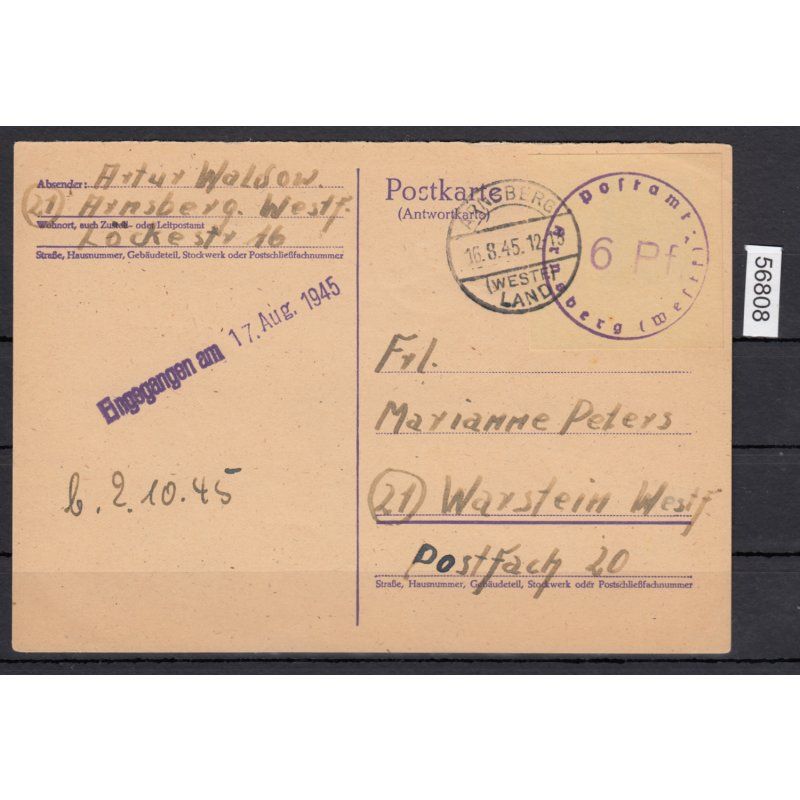 Absender: Artur Waldow.
(21) Arnsberg. Westf.
Wohnort, auch Zustell- oder Leitpostamt
Lockestr 16
Straße, Hausnummer, Gebäudeteil, Stockwerk oder Postschließfachnummer
Eingegangen am 17. Aug. 1945
b. 2.10.45
Postkarte
(Antwortkarte)
ARNSBERG
16.8.45.12-13
(WESTF)
LAND
Postamt
6 Pf
Arnsberg (Westf)
Frl.
Marianne Peters
(21) Warstein Westf.
Postfach 20
Straße, Hausnummer, Gebäudeteil, Stockwerk oder Postschließfachnummer
56808